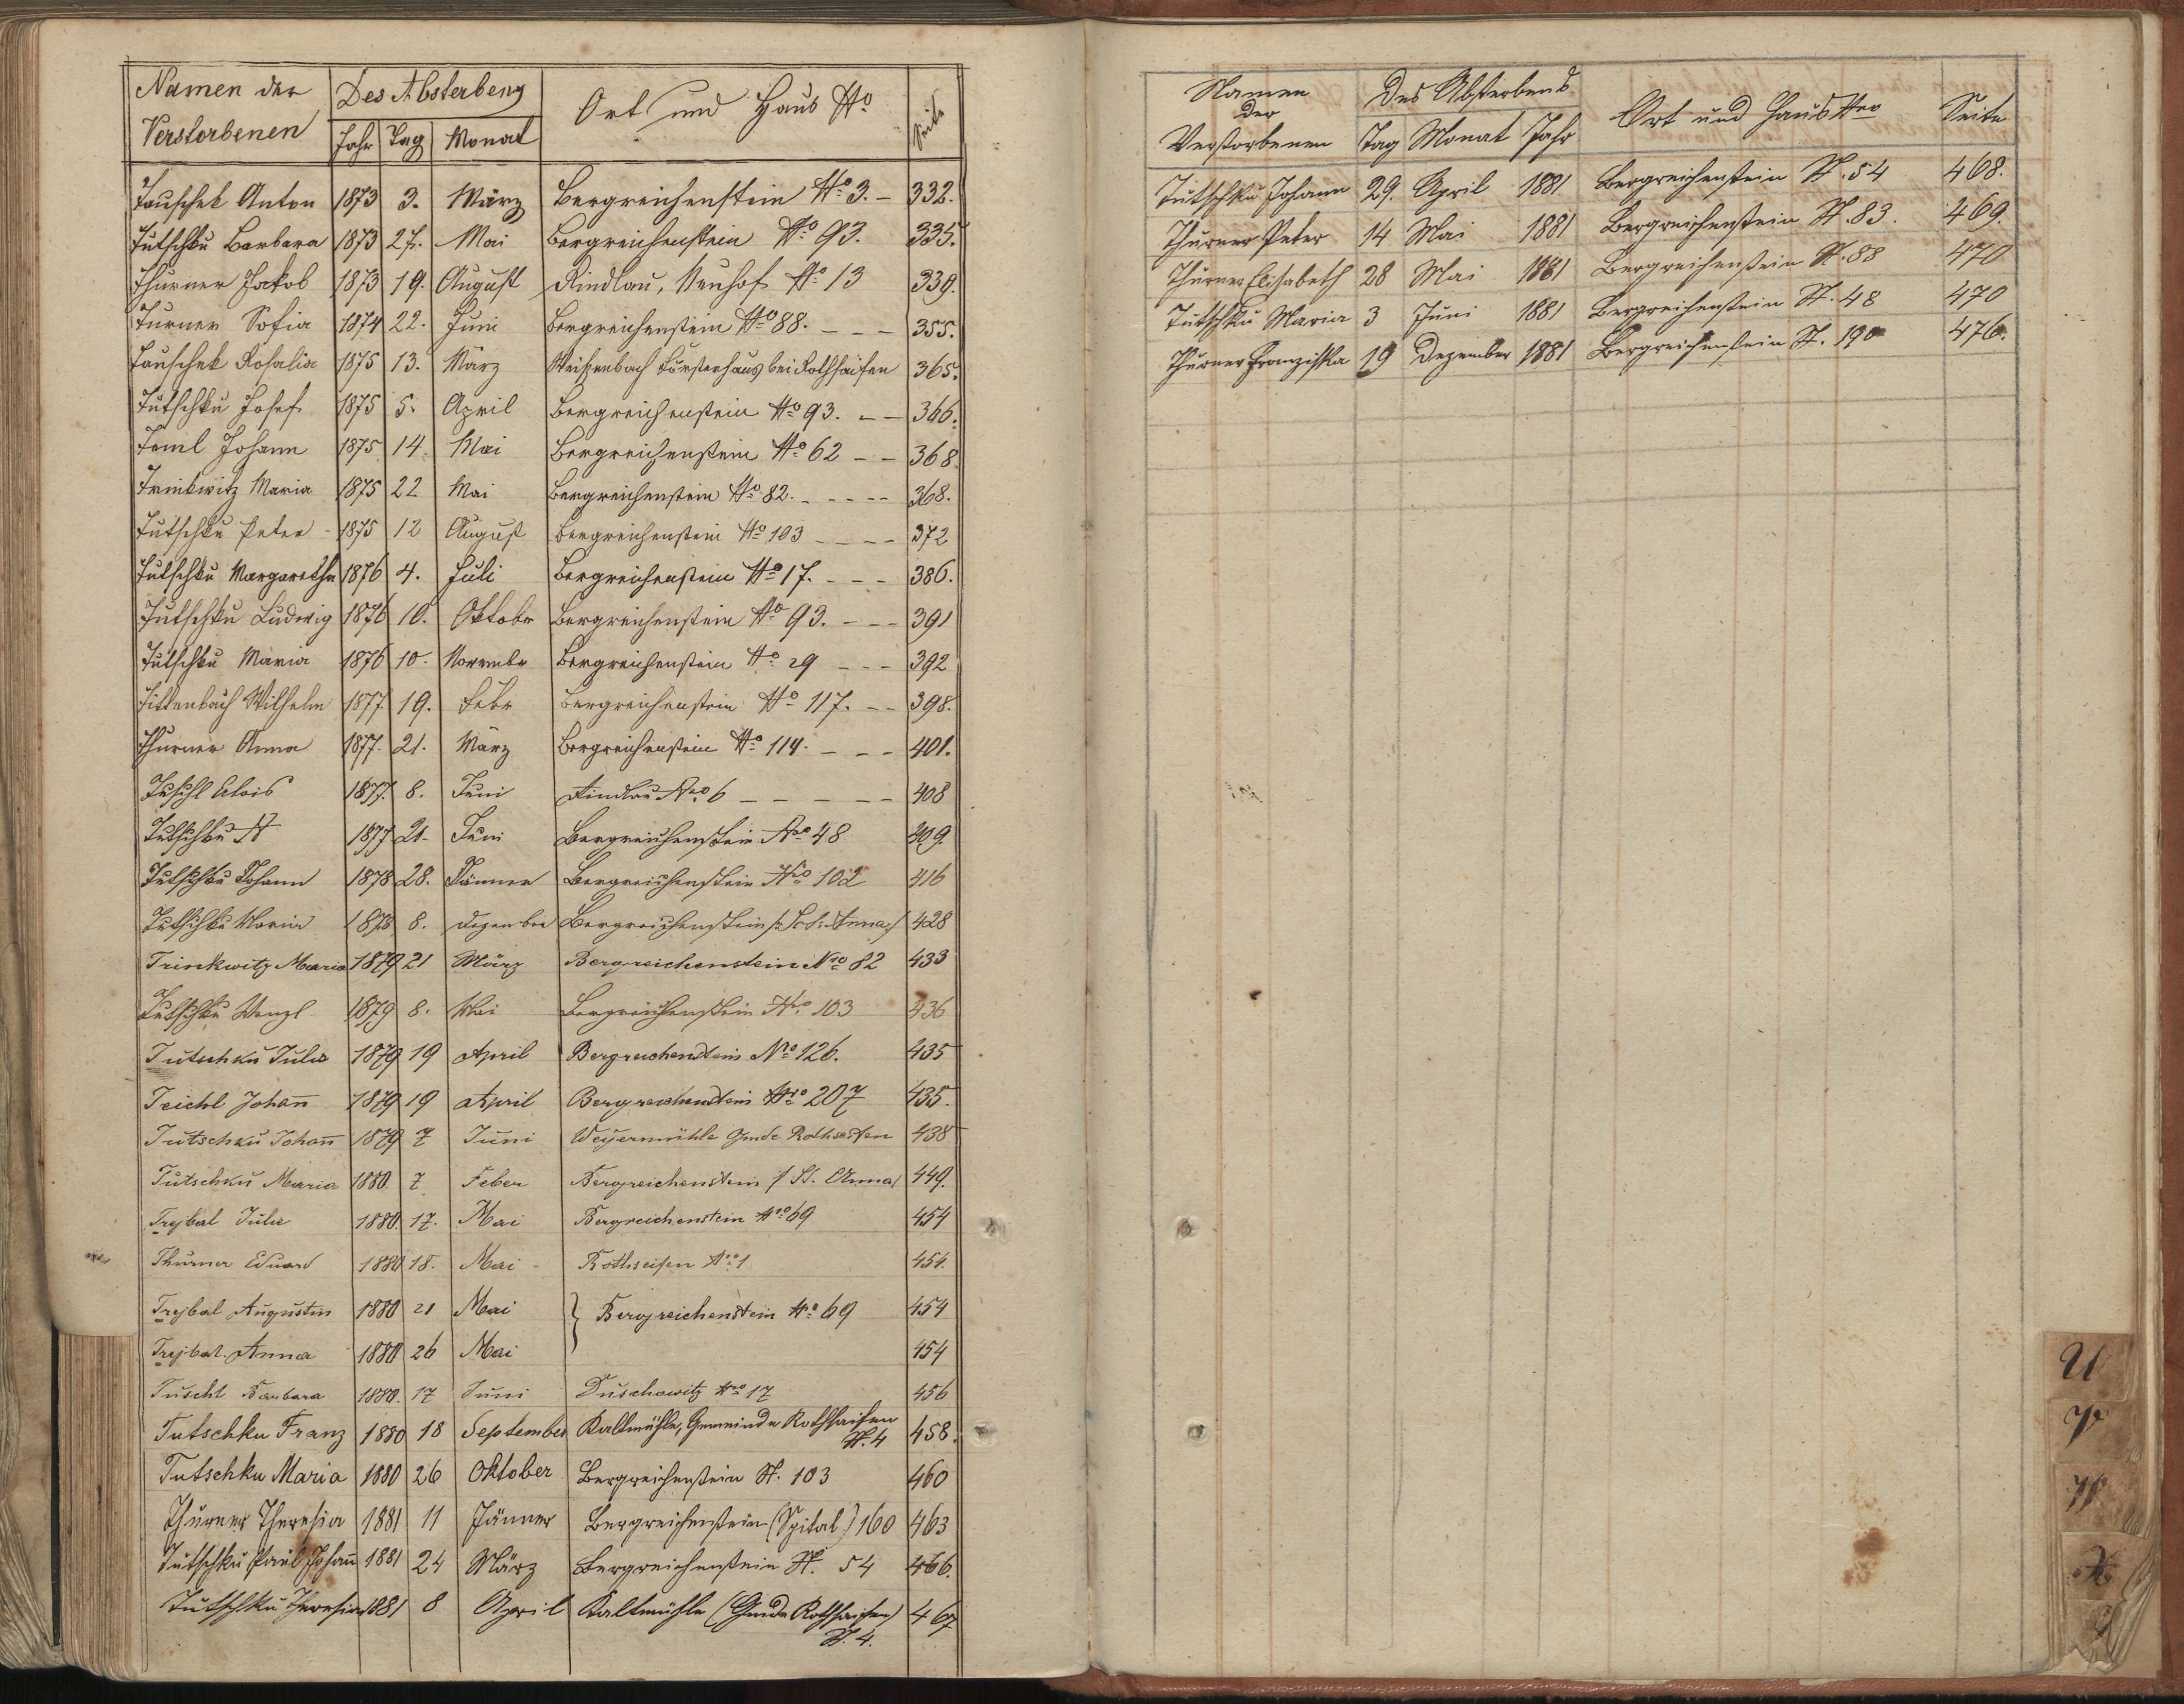 Namen der Verstorbenen | Des Absterbens | Ort und Haus No | Seite
Jahr | Tag | Monat
Tauschek Anton 1873 3. März Bergreichenstein No 3. – 332.
Tutschku Barbara 1873 27. Mai Bergreichenstein No 93. 335.
Thurner Jakob 1873 19. August Rindlau, Neuhof No 13 339.
Turner Sofia 1874 22. Juni Bergreichenstein No 88. – – – 355.
Tauschek Rosalia 1875 13. März Weißenbach Försterhaus bei Rothsaifen 365.
Tutschku Josef 1875 5. April Bergreichenstein No 93. – – 366.
Teml Johann 1875 14. Mai Bergreichenstein No 62 – – 368.
Trinkwitz Maria 1875 22 Mai Bergreichenstein No 82. – – – – – 368.
Tutschku Peter 1875 12 August Bergreichenstein No 103 – – – – 372
Tutschku Margaretha 1876 4. Juli Bergreichenstein No 17. – – – 386.
Tutschku Ludwig 1876 10. Oktobr Bergreichenstein No 93. – – – 391
Tutschku Maria 1876 10. Novembr Bergreichenstein No 29 – – – 392
Tittenbach Wilhelm 1877 19. Febr Bergreichenstein No 117. – – 398.
Thurner Anna 1877. 21. März Bergreichenstein No 114. – – – 401.
Tuschl Alois 1877. 8. Juni Rindlau Nro 6 – – – – – 408
Tutschku N 1877 21. Juni Bergreichenstein Nro 48 409.
Tutschku Johann 1878 28. Jänner Bergreichenstein Nro 102 416
Tutschku Maria 1878 8. Dezember Bergreichenstein /: Sct: Anna :/ 428
Trinkwitz Maria 1879 21 März Bergreichenstein Nro 82 433
Tutschku Wenzl 1879 8. Mai Bergreichenstein Nro 103 436
Tutschku Julie 1879 19 April Bergreichenstein Nro 126. 435
Teichl Johann 1879 19 April Bergreichenstein Nro 207 435.
Tutschku Johann 1879 7 Juni Weyermühle Gmde Rothseifen 438
Tutschku Maria 1880. 7 Feber Bergreichenstein / St. Anna / 449.
Trejbal Julie 1880. 17. Mai Bergreichenstein Nro 69 454
Thurner Eduard 1880 18. Mai Rothseifen Nro 1 454.
Trejbal Augustin 1880 21 Mai } Bergreichenstein Nro 69 454
Trejbal Anna 1880 26 Mai 454
Tuschl Barbara 1880. 17 Juni Duschowitz Nro 17 456
Tutschku Franz 1880 18 September Kaltmühle, Gemeinde Rothsaifen N. 4 458.
Tutschku Maria 1880 26 Oktober Bergreichenstein N. 103 460
Thurner Theresia 1881 11 Jänner Bergreichenstein (Spital) 160 463
Tutschku Paul Johann 1881 24 März Bergreichenstein N. 54 466.
Tutschku Theresia 1881 8 April Kaltmühle (Gmde Rothsaifen) N. 4. 467
Namen der Verstorbenen | Des Absterbens | Ort und Haus Nro | Seite
Tag Monat Jahr
Tutschku Johann 29. April 1881 Bergreichenstein N. 54 468.
Thurner Peter 14 Mai 1881 Bergreichenstein N. 83. 469.
Thurner Elisabeth 28 Mai 1881 Bergreichenstein N. 88 470
Tutschku Maria 3 Juni 1881 Bergreichenstein N. 48 470
Thurner Franziska 19 Dezember 1881 Bergreichenstein N. 190 476.
U
V
W